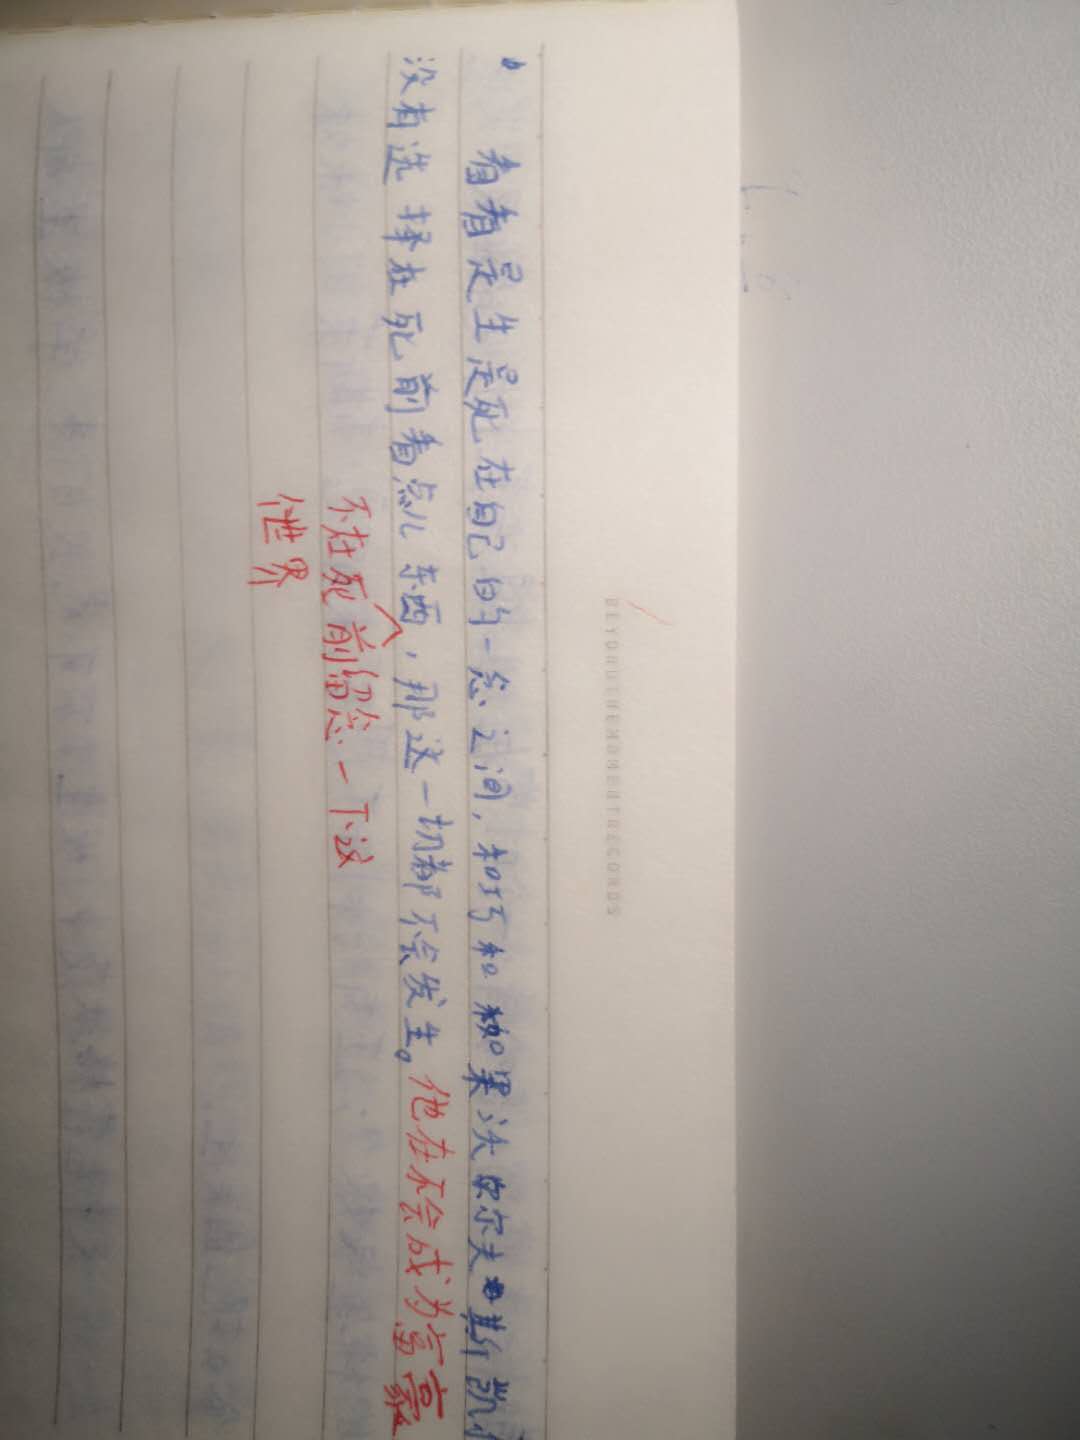 BEYONDTHEMOMENTRECORDS
看看是生是死在自己的一念之间,和巧和如果沃尔夫斯凯
没有选择在死前看点儿东西,那这一切都不会发生。他在不会成为富豪
不在死前留念一下这
世界